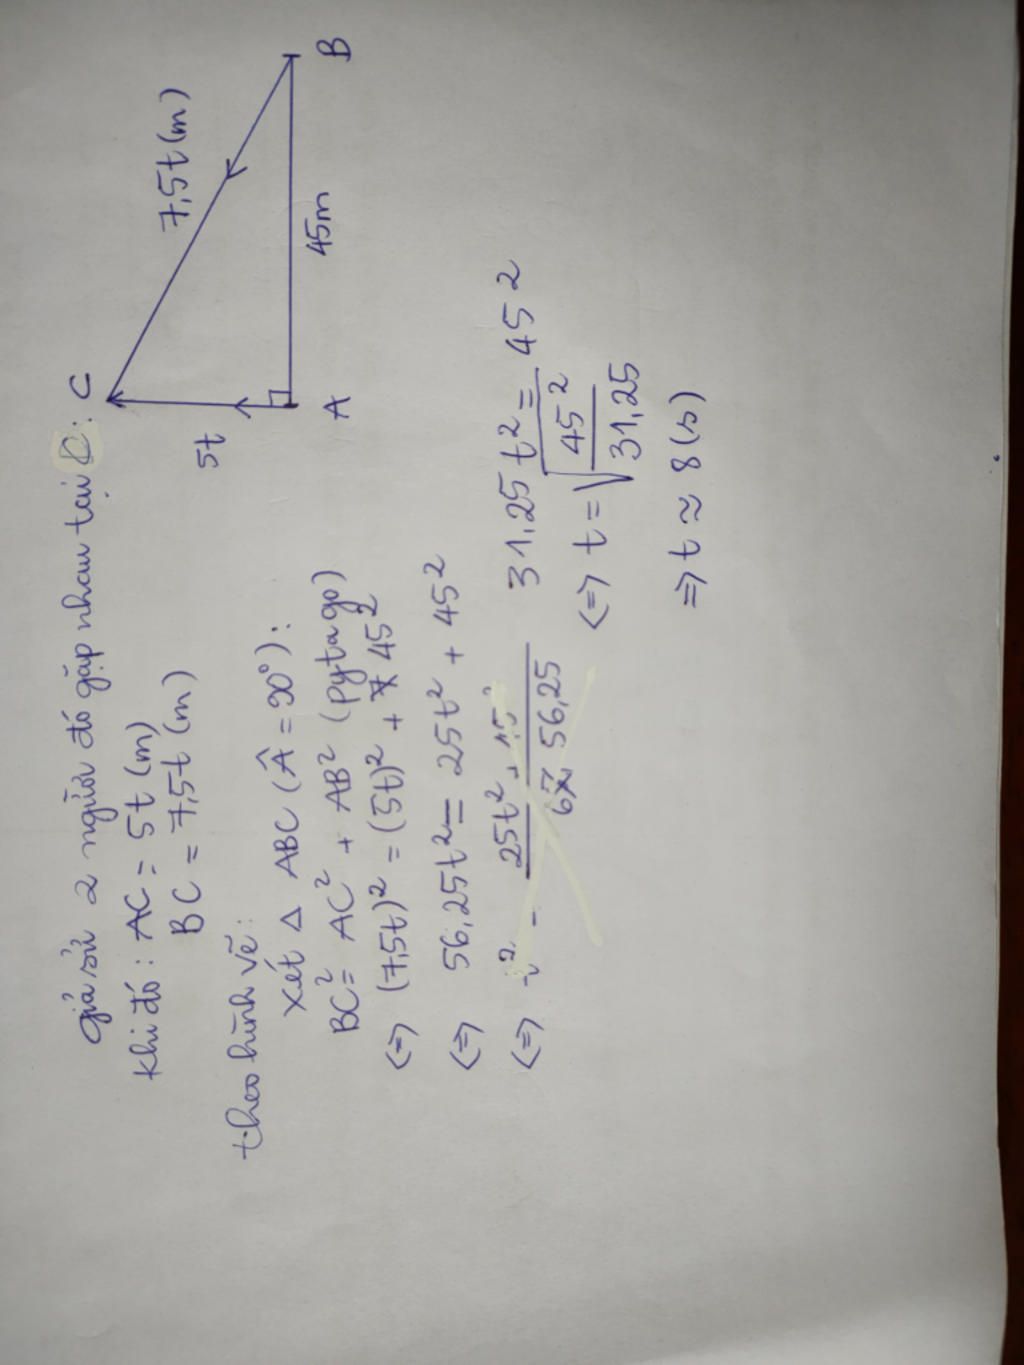 giả sử 2 người đó gặp nhau tại C:
Khi đó: AC = 5t (m)
BC = 7,5t (m)
theo hình vẽ:
Xét Δ ABC (Â = 90°):
BC² = AC² + AB² (pytago)
<=> (7,5t)² = (5t)² + 45²
<=> 56,25t² = 25t² + 45²
<=> t² = 25t² + 45²
56,25
31,25t² = 45²
<=> t = √45²
31,25
=> t ≈ 8 (s)
C
7,5t (m)
5t
A
45m
B